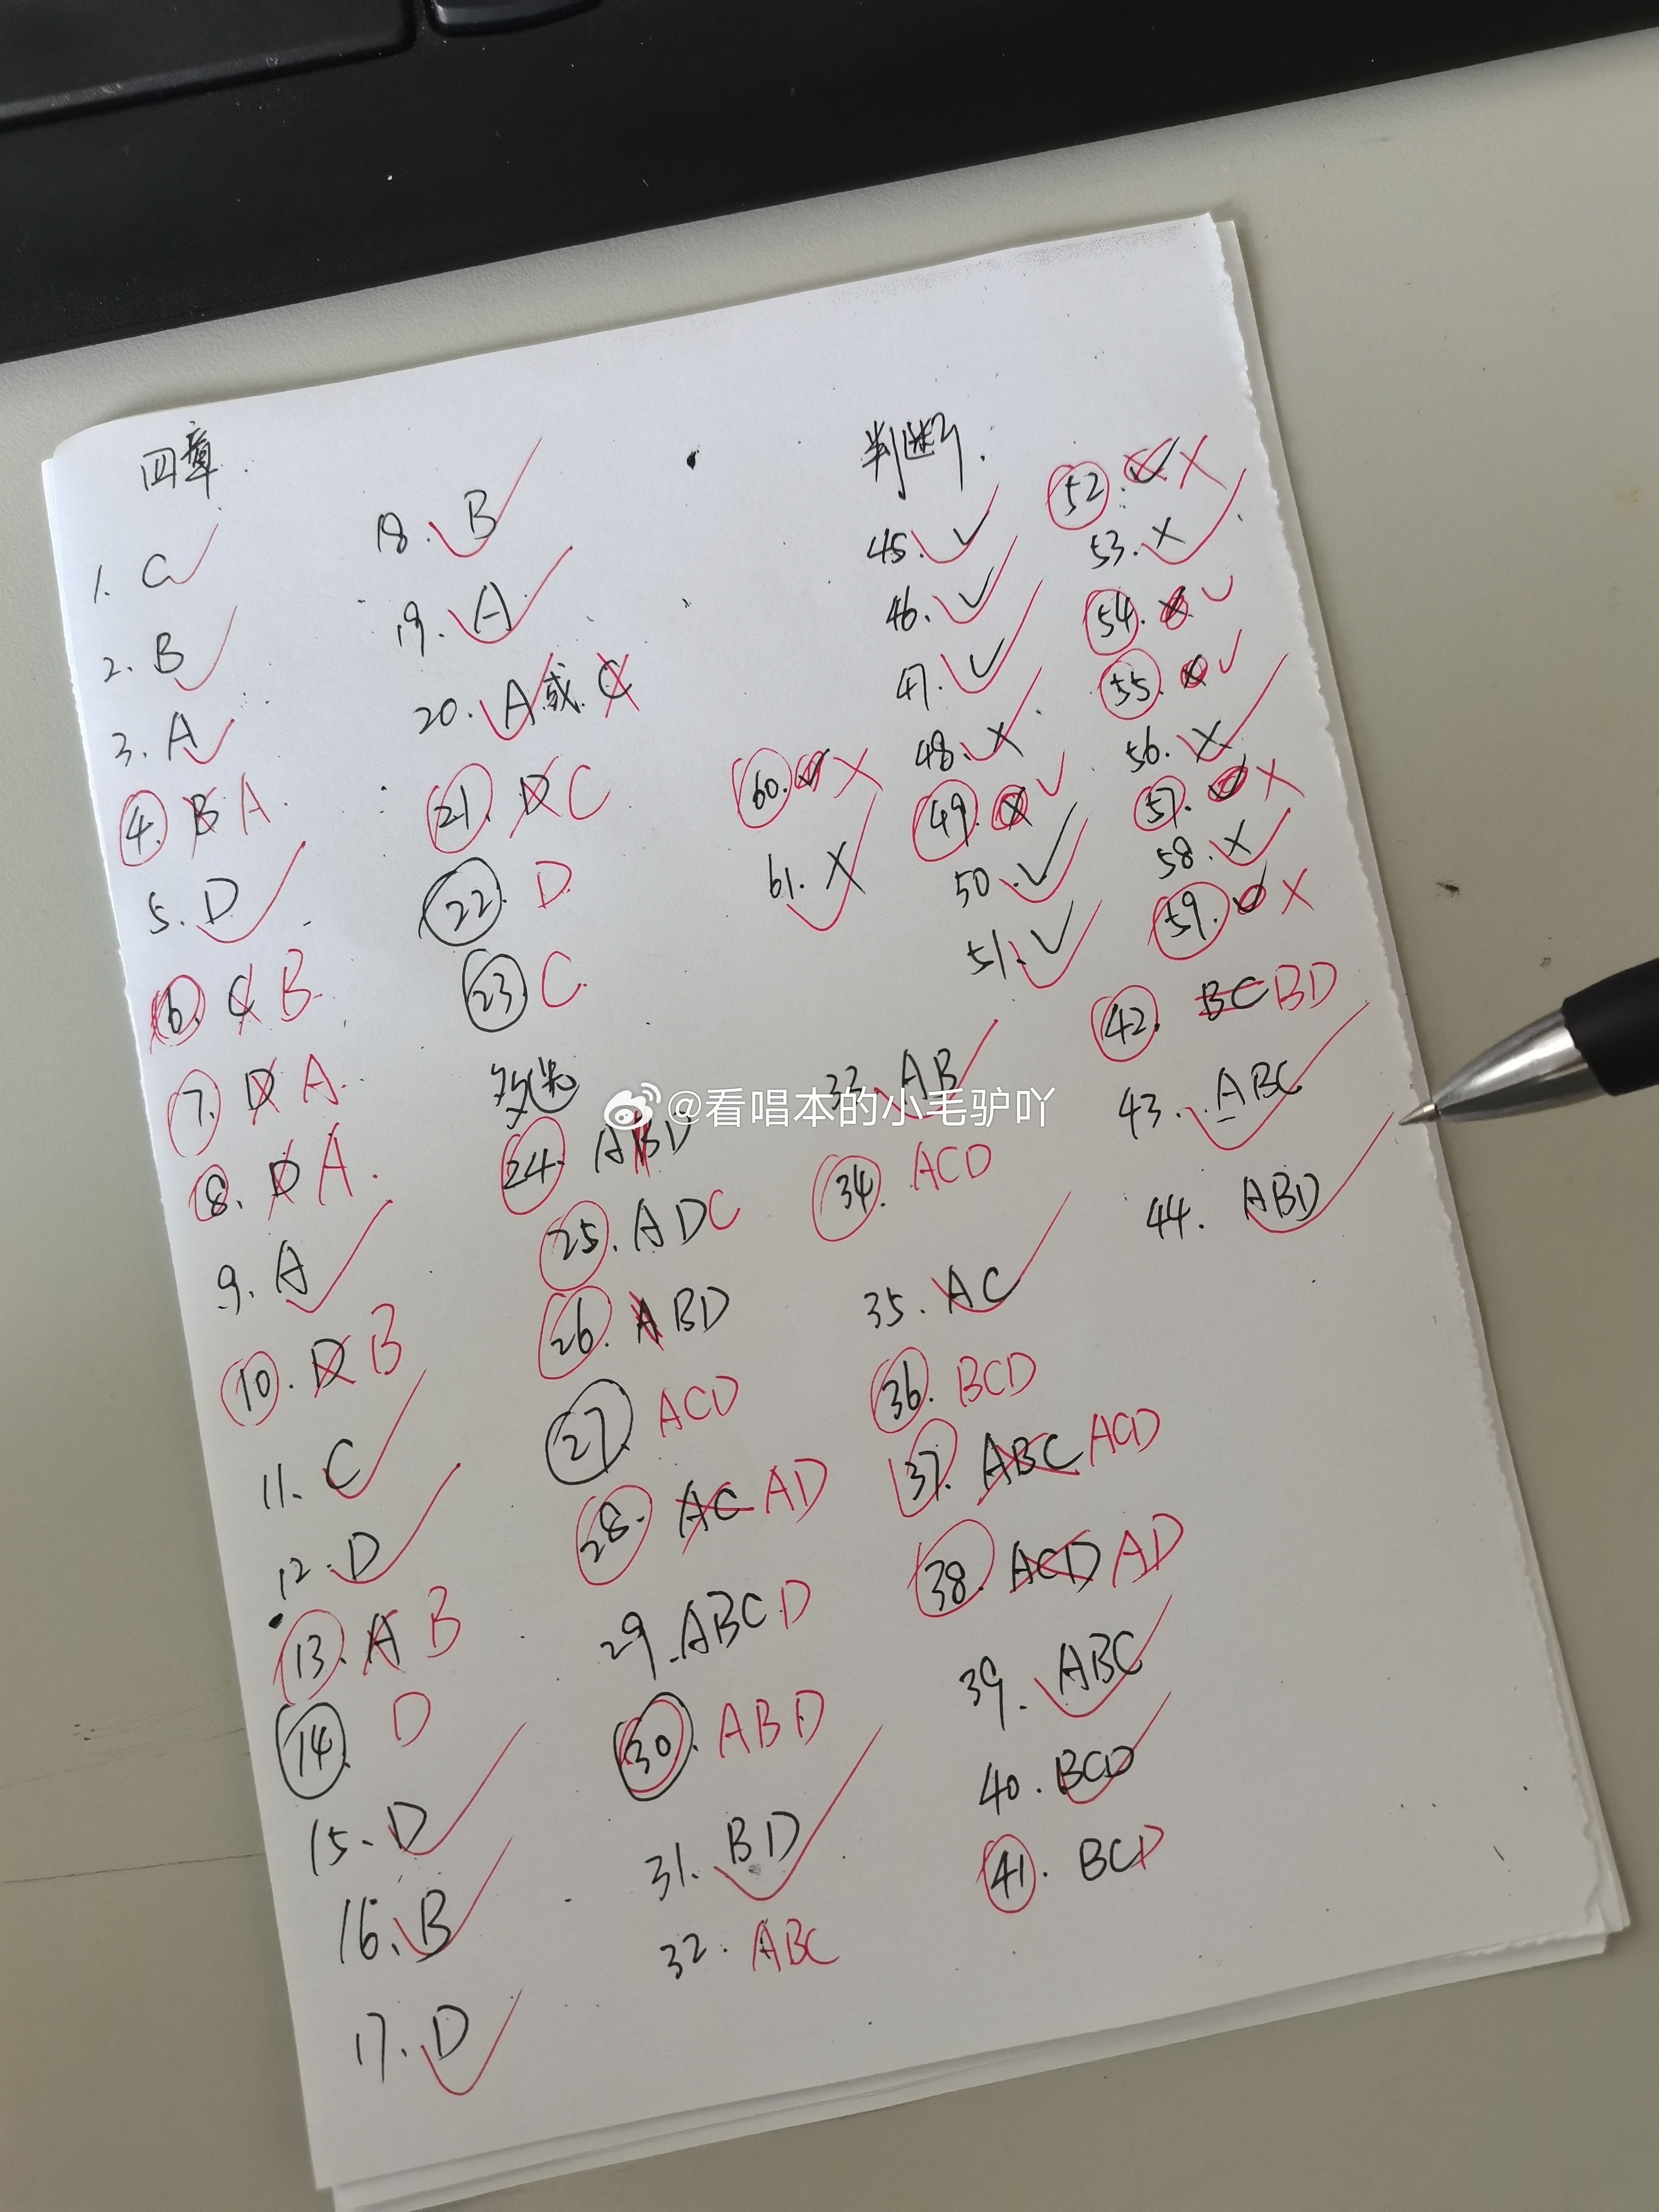 四章
1. C
2. B
3. A
4. B A
5. D
6. C B
7. D A
8. D A
9. A
10. D B
11. C
12. D
13. A B
14. D
15. D
16. B
17. D
18. B
19. A
20. A或C
21. D C
22. D
23. C
多选
24. ABD
25. ADC
26. ABD
27. ACD
28. AC AD
29. ABCD
30. ABD
31. BD
32. ABC
33. AB
34. ACD
35. AC
36. BCD
37. ABC ACD
38. ACD AD
39. ABC
40. BCD
41. BCD
42. BC BD
43. ABC
44. ABD
判断.
45. ✓
46. ✓
47. ✓
48. ×
49. × ✓
50. ✓
51. ✓
52. ✓ ×
53. ×
54. × ✓
55. × ✓
56. ×
57. ✓ ×
58. ×
59. ✓ ×
60. ✓ ×
61. ×
@看唱本的小毛驴吖